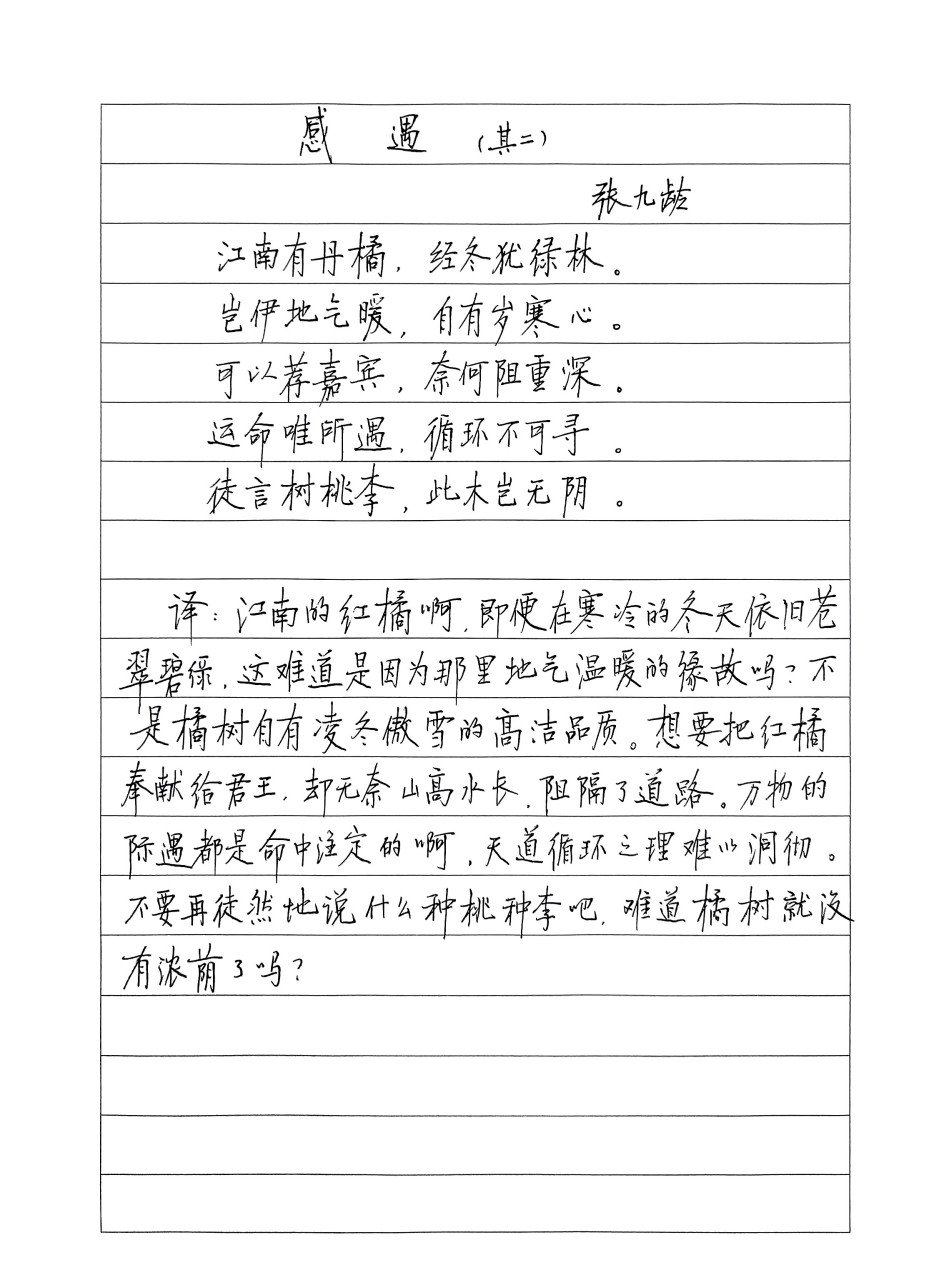 感 遇 （其二）
张九龄
江南有丹橘，经冬犹绿林。
岂伊地气暖，自有岁寒心。
可以荐嘉宾，奈何阻重深。
运命唯所遇，循环不可寻。
徒言树桃李，此木岂无阴。
译：江南的红橘啊，即便在寒冷的冬天依旧苍
翠碧绿，这难道是因为那里地气温暖的缘故吗？不
是橘树自有凌冬傲雪的高洁品质。想要把红橘
奉献给君王，却无奈山高水长，阻隔了道路。万物的
际遇都是命中注定的啊，天道循环之理难以洞彻。
不要再徒然地说什么种桃种李吧，难道橘树就没
有浓荫了吗？